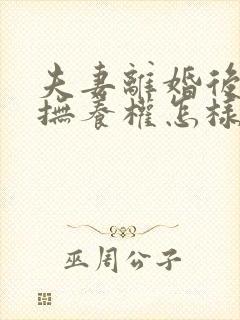 夫妻離婚後
撫養權怎樣
巫周公子